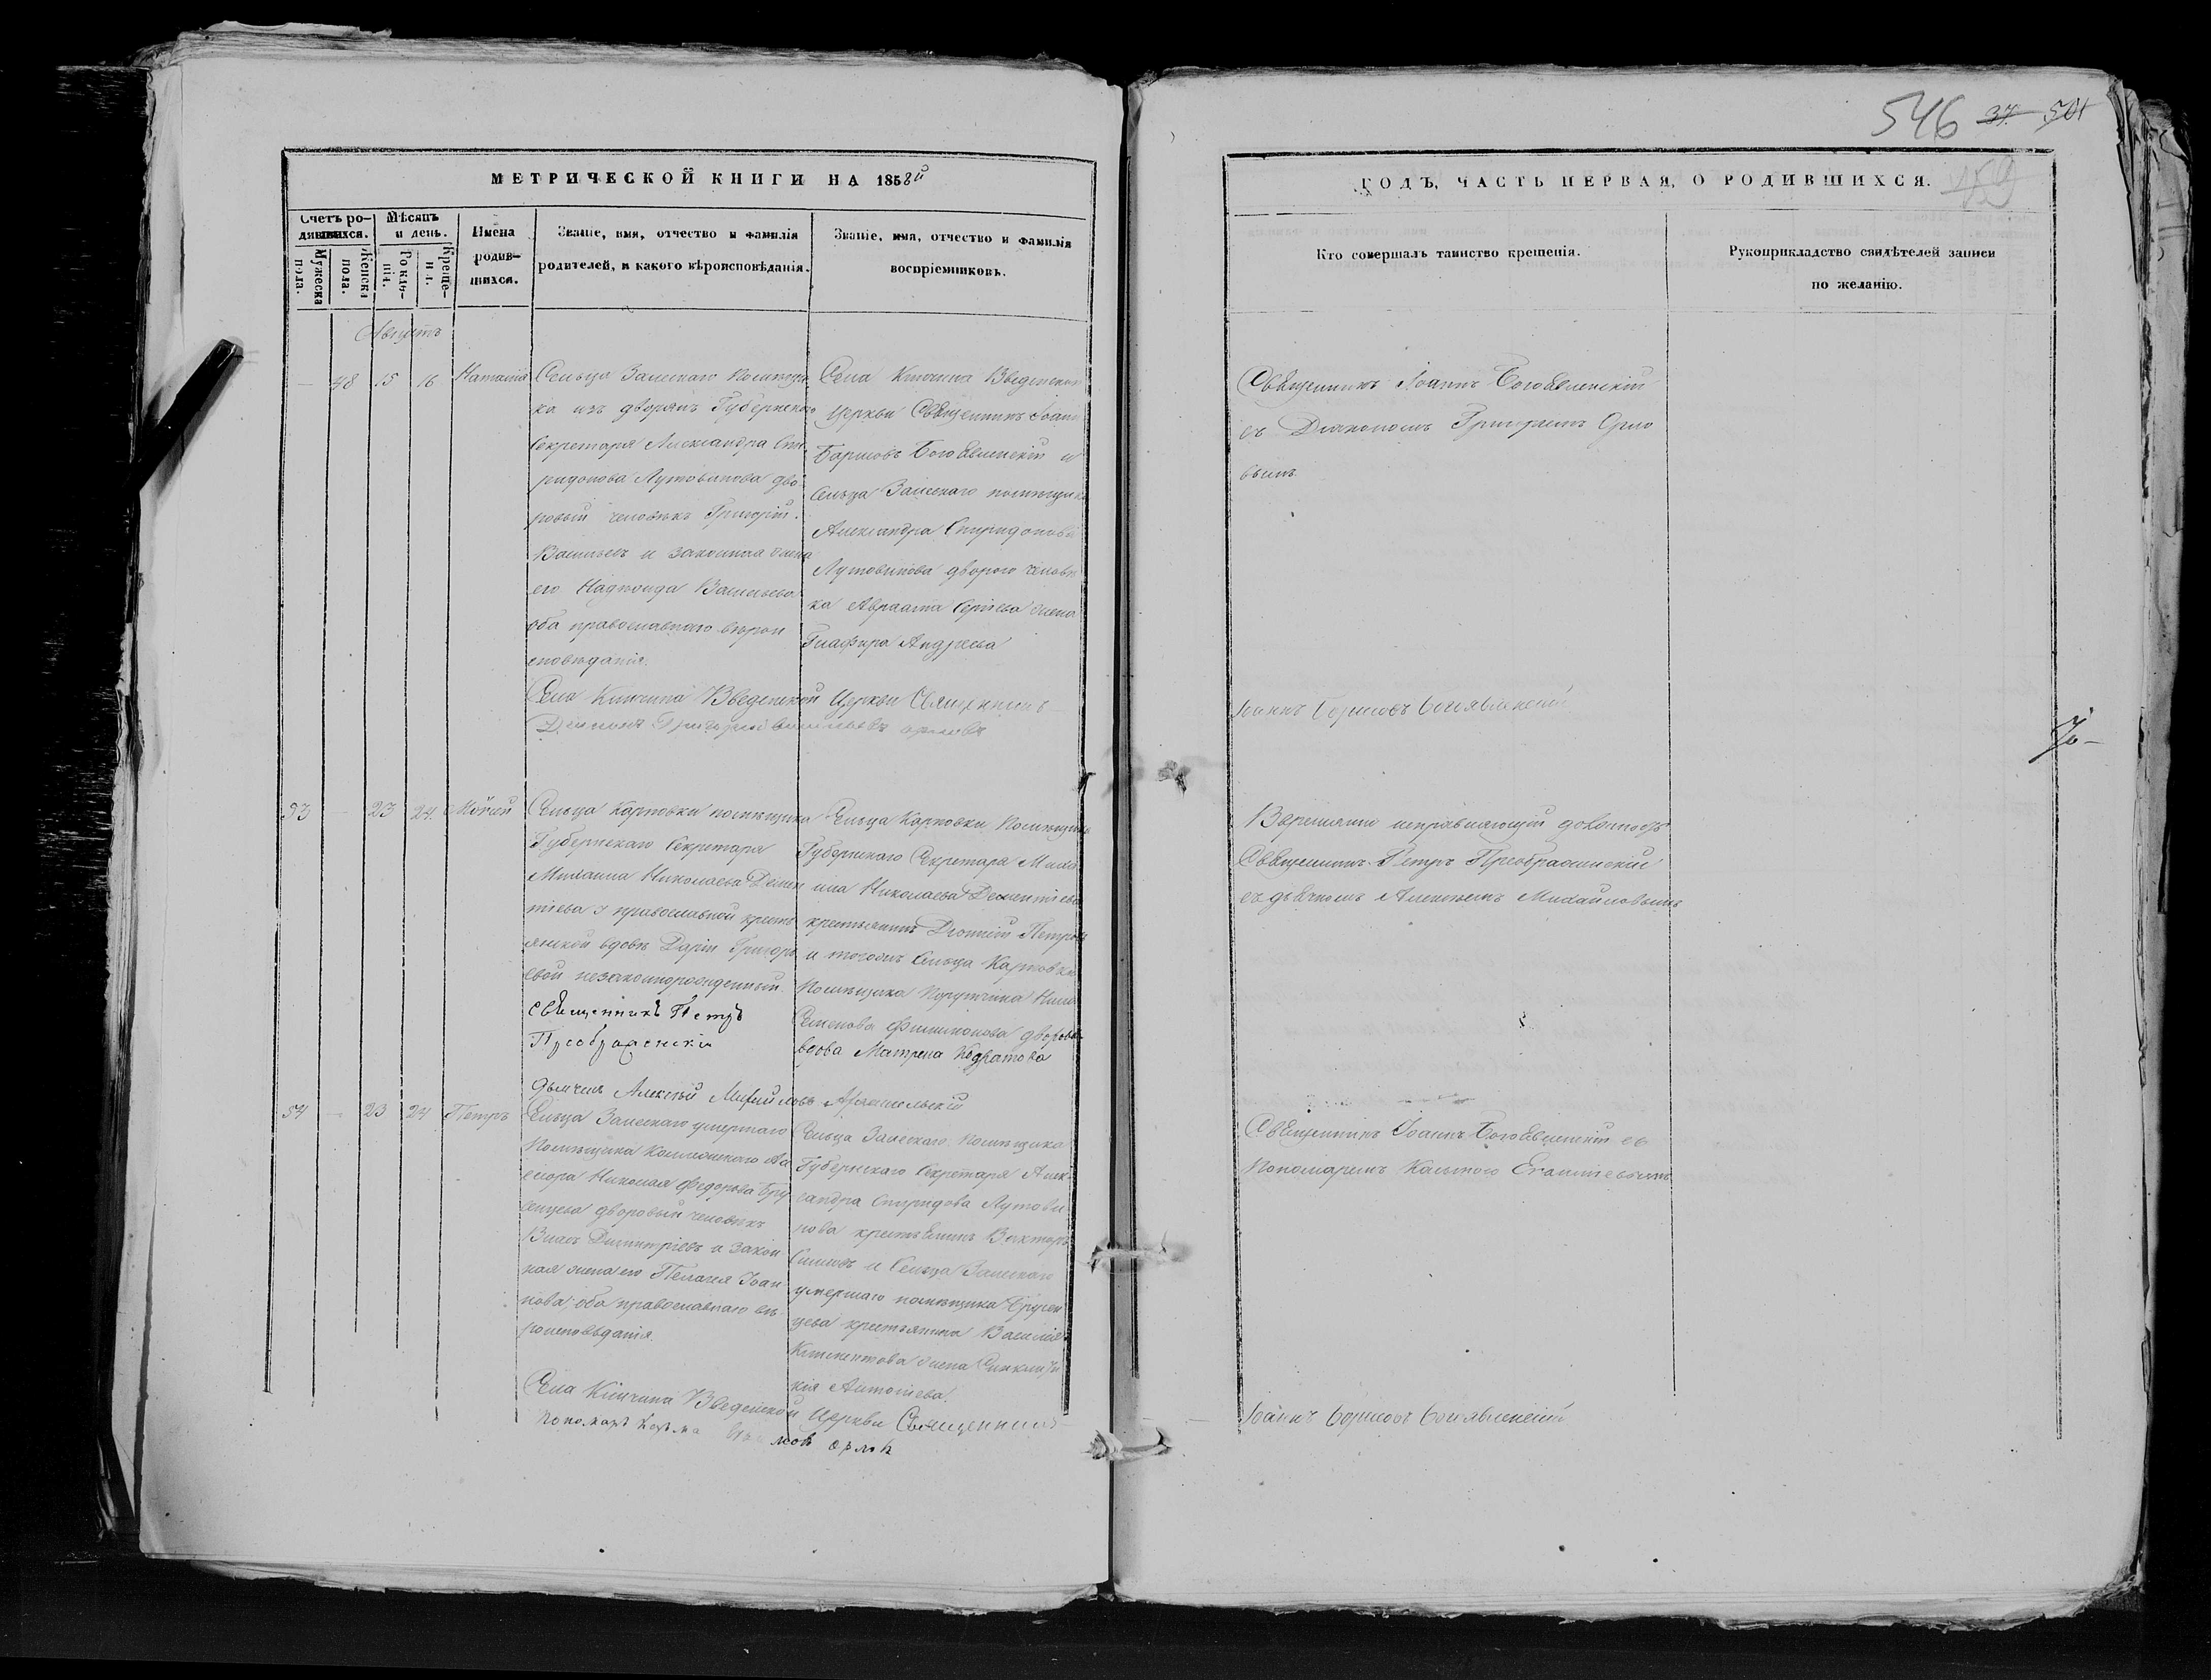 546 37 501
159
МЕТРИЧЕСКОЙ КНИГИ НА 1858й
ГОДЪ, ЧАСТЬ ПЕРВАЯ, О РОДИВШИХСЯ.
Счетъ родившихся.
Мужеска пола.
Женска пола.
Мѣсяцъ и день.
Рожденія.
Крещенія.
Имена родившихся.
Званіе, имя, отчество и фамилія
родителей, и какого вѣроисповѣданія.
Званіе, имя, отчество и фамилія
воспріемниковъ.
Кто совершалъ таинство крещенія.
Рукоприкладство свидѣтелей записи
по желанію.
Августъ
— 48 15 16 Наталія
Сельца Залескаго Помѣщи
ка изъ дворянъ Губернскаго
Секретаря Александра Спи
ридонова Лутовинова дво
ровый человѣкъ Григорій
Васильевъ и законная жена
его Васильева
оба православнаго вѣрои
сповѣданія.
Села Введенской
Церкви Священникъ Іоаннъ
Борисовъ Богоявленскій и
Сельца Залескаго помѣщика
Александра Спиридонова
Лутовинова дворого человѣ
ка Авраама Сергѣева жена
Глафира Андреева
Священникъ Іоаннъ Богоявленскій
съ Діакономъ Григоріемъ Орло
вымъ
Села Введенской Церкви Священникъ
Іоаннъ Борисовъ Богоявленскій
Діаконъ Григорій Васильевъ Орловъ
53 — 23 24 Мойсей
Сельца Карповки помѣщика
Губернскаго Секретаря
Михаила Николаева Демен
тіева у православной кресть
янской вдовы Дарьи Григорь
евой незаконнорожденный
Священникъ Петръ
Преображенскій
Дьячекъ Алексѣй Михайловъ Архангельскій
Сельца Карповки Помѣщика
Губернскаго Секретаря Миха
ила Николаева Дементіева
крестьянинъ Діонисій Петровъ
и тогожъ Сельца Карповки
Помѣщика Порутчика
Семенова Филимонова дворовая
вдова Матрена Кодратова
Временно исправляющій должность
Священникъ Петръ Преображенскій
съ дьячкомъ Алексѣемъ Михайловымъ
54 — 23 24 Петръ
Сельца Залескаго умершаго
Помѣщика Коллежскаго Ас
сесора Николая Федорова Бру
сенцева дворовый человѣкъ
Власъ Димитріевъ и закон
ная жена его Пелагея Іоан
нова, оба православнаго вѣ
роисповѣданія
Сельца Залескаго Помѣщика
Губернскаго Секретаря Алек
сандра Спиридова Лутови
нова крестьянинъ Викторъ
и Сельца Залескаго
умершаго помѣщика Брусен
цева крестьянина Василія
Климентова жена Синклити
кія Антонова
Священникъ Іоаннъ Богоявленскій съ
Пономаремъ
Села Введенской Церкви Священникъ
Іоаннъ Борисовъ Богоявленскій
пономарь